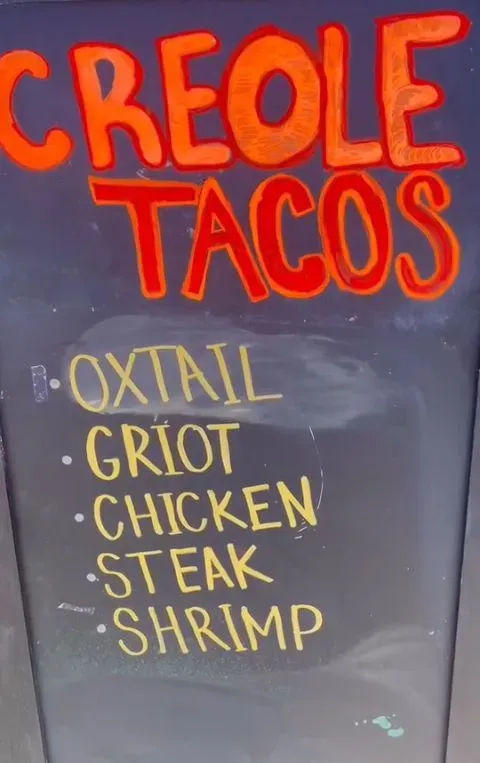 CREOLE
TACOS
• OXTAIL
• GRIOT
• CHICKEN
• STEAK
• SHRIMP